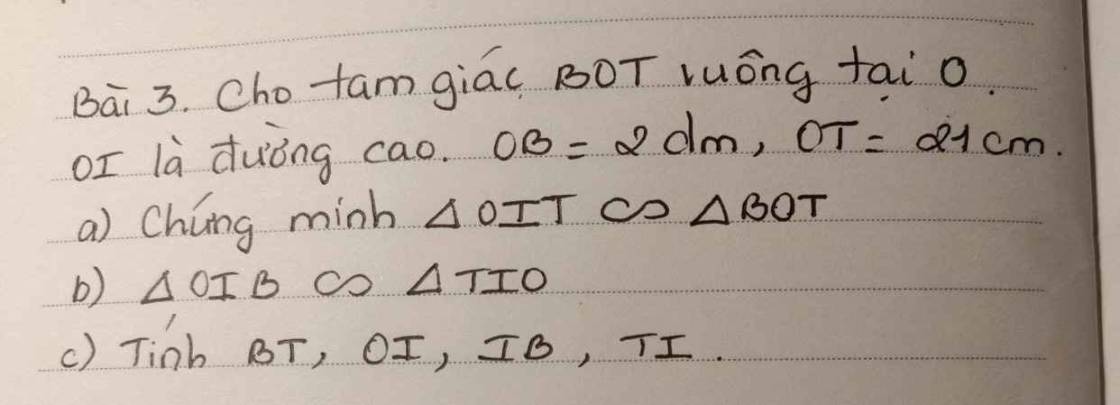 Bài 3. Cho tam giác BOT vuông tại O.
OI là đường cao. OB = 2 dm, OT = 21 cm.
a) Chứng minh △OIT ∽ △BOT
b) △OIB ∽ △TIO
c) Tính BT, OI, IB, TI.